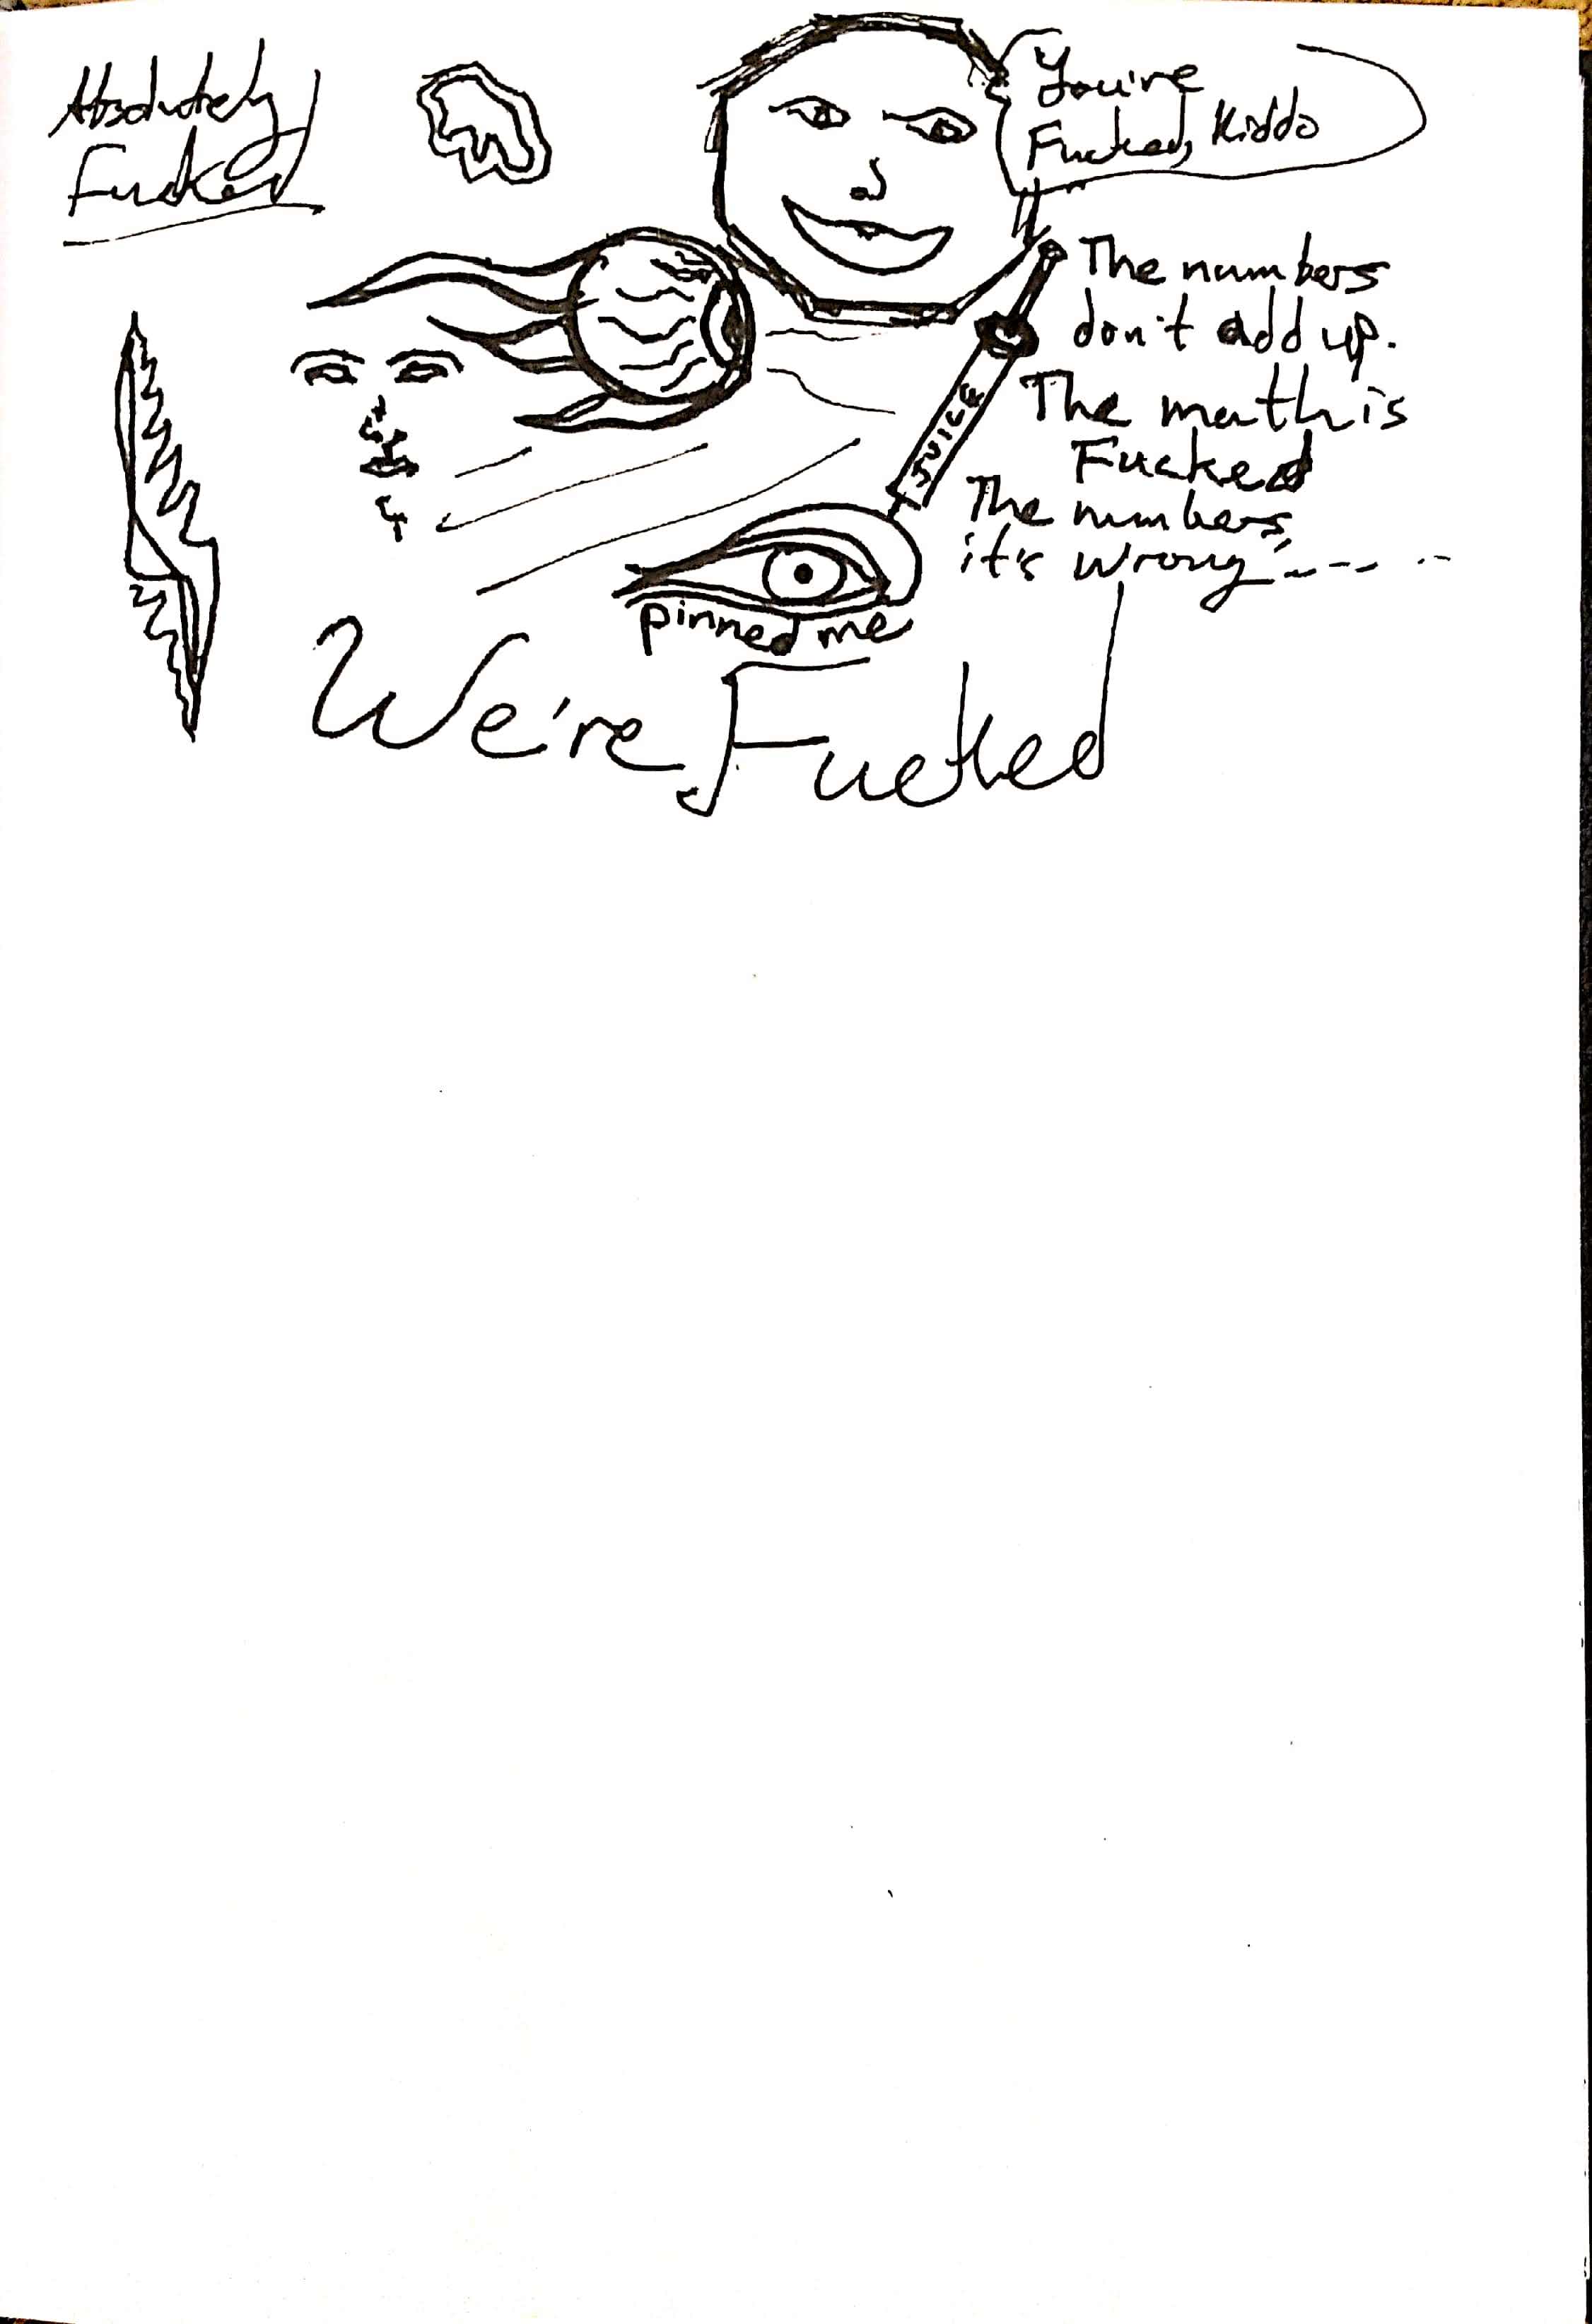 Absolutely
Fucked
You're
Fucked, Kiddo
The numbers
don't add up.
The math is
Fucked
The numbers,
it's wrong
JUICE
pinned me
We're Fucked